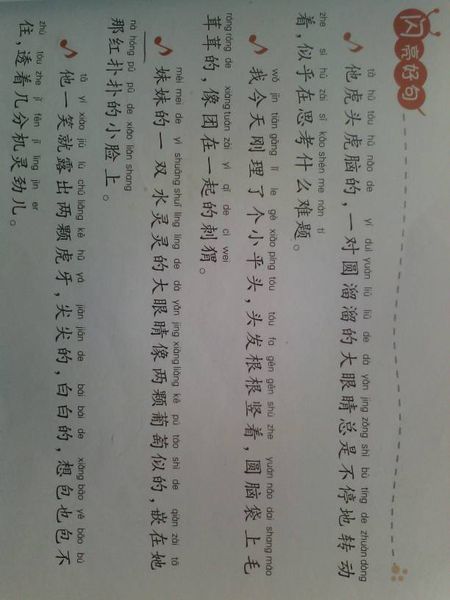 闪亮好句
tā hǔ tóu hǔ nǎo de yí duì yuán liū liū de dà yǎn jing zǒng shì bù tíng de zhuàn dòng
他虎头虎脑的，一对圆溜溜的大眼睛总是不停地转动
zhe sì hū zài sī kǎo shén me nán tí
着，似乎在思考什么难题。
wǒ jīn tiān gāng lǐ le gè xiǎo píng tóu tóu fa gēn gēn shù zhe yuán nǎo dai shang máo
我今天刚理了个小平头，头发根根竖着，圆脑袋上毛
róng róng de xiàng tuán zài yì qǐ de cì wei
茸茸的，像团在一起的刺猬。
mèi mei de yì shuāng shuǐ líng líng de dà yǎn jing xiàng liǎng kē pú táo shì de qiàn zài tā
妹妹的一双水灵灵的大眼睛像两颗葡萄似的，嵌在她
nà hóng pū pū de xiǎo liǎn shang
那红扑扑的小脸上。
tā yí xiào jiù lù chū liǎng kē hǔ yá jiān jiān de bái bái de xiǎng bāo yě bāo bú
他一笑就露出两颗虎牙，尖尖的，白白的，想包也包不
zhù tòu zhe jǐ fēn jī líng jìn er
住，透着几分机灵劲儿。